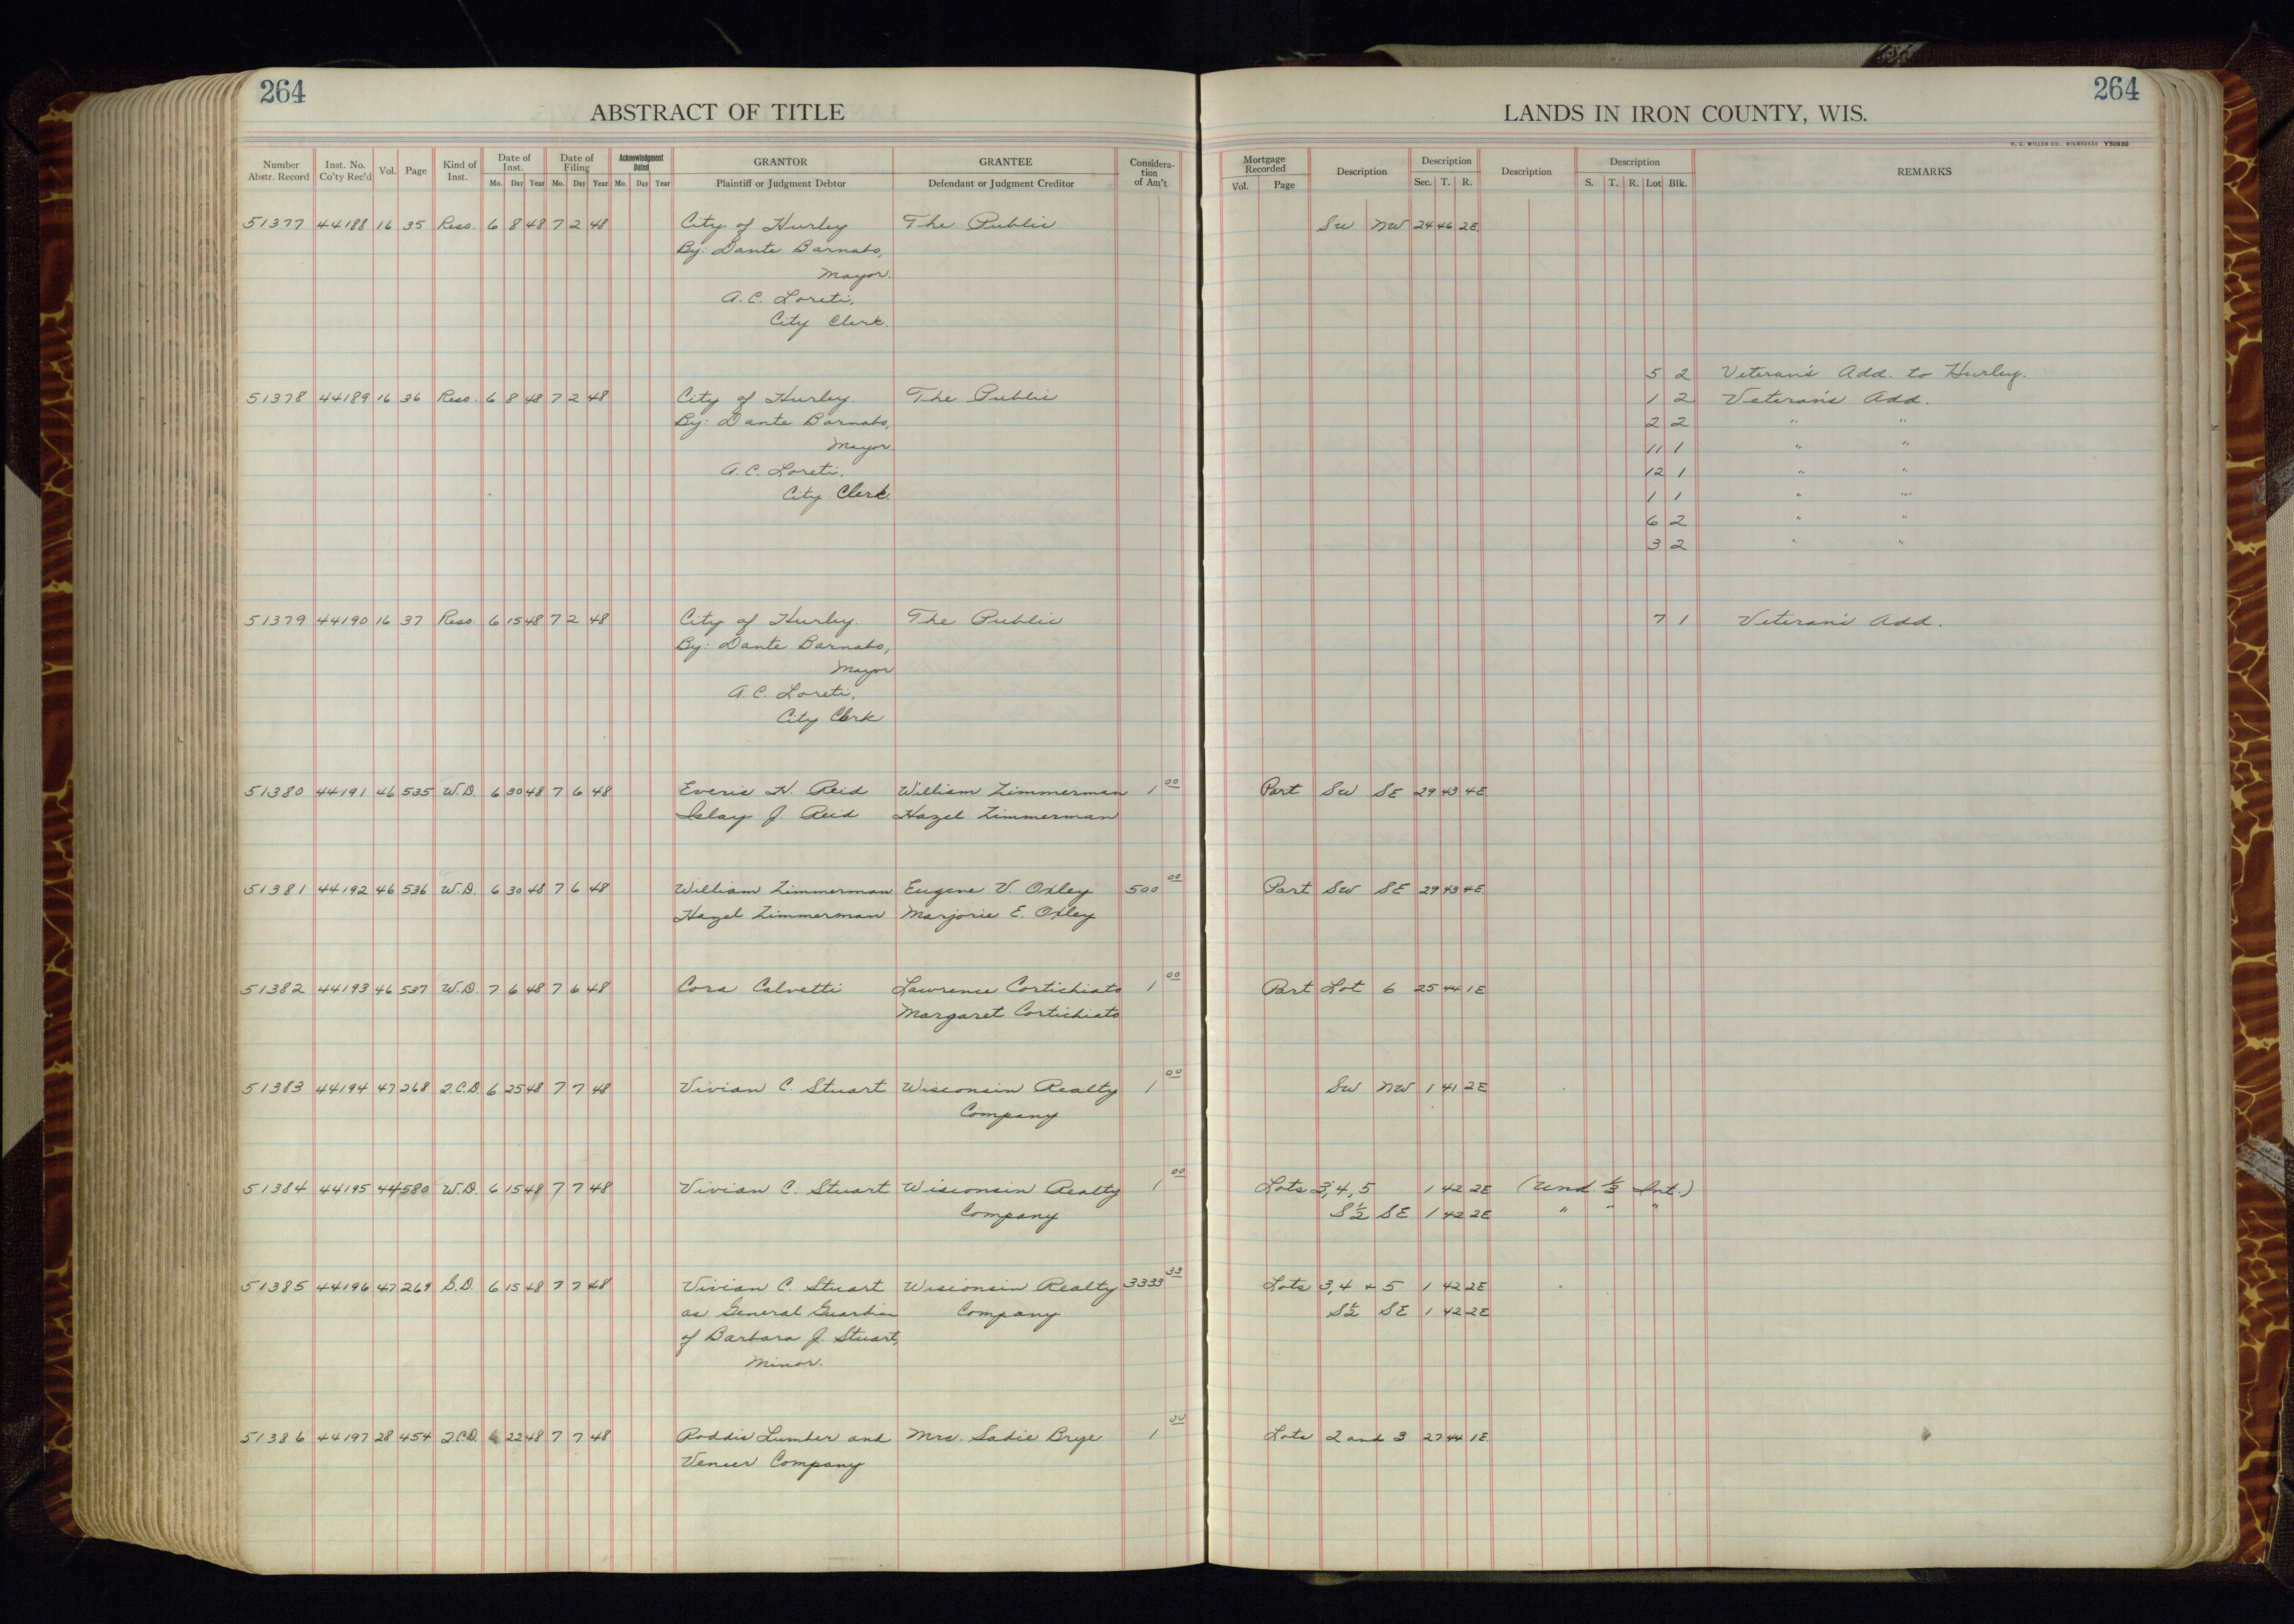 264
264
ABSTRACT OF TITLE
LANDS IN IRON COUNTY, WIS.
H. C. MILLER CO., MILWAUKEE Y50930
Number Abstr. Record Inst. No. Co'ty Rec'd Vol. Page Kind of Inst. Date of Inst. Mo. Day Year Date of Filing Mo. Day Year Acknowledgment Dated Mo. Day Year GRANTOR Plaintiff or Judgment Debtor GRANTEE Defendant or Judgment Creditor Considera-tion of Am't
Mortgage Recorded Vol. Page Description Description Sec. T. R. Description Description S. T. R. Lot Blk. REMARKS
51377 44188 16 35 Reso. 6 8 48 7 2 48 City of Hurley The Public SW NW 24 46 2E
By: Dante Barnabo,
Mayor.
A. C. Loreti,
City Clerk.
5 2 Veteran's Add. to Hurley.
51378 44189 16 36 Reso. 6 8 48 7 2 48 City of Hurley The Public 1 2 Veteran's Add.
By: Dante Barnabo, 2 2 " "
Mayor 11 1 " "
A. C. Loreti, 12 1 " "
City Clerk. 1 1 " "
6 2 " "
3 2 " "
51379 44190 16 37 Reso. 6 15 48 7 2 48 City of Hurley. The Public 7 1 Veteran's Add.
By: Dante Barnabo,
Mayor
A. C. Loreti,
City Clerk
51380 44191 46 535 W.D. 6 30 48 7 6 48 Everis H. Reid William Zimmerman 1 00 Part SW SE 29 43 4E
Islay J. Reid Hazel Zimmerman
51381 44192 46 536 W.D. 6 30 48 7 6 48 William Zimmerman Eugene V. Oxley 500 00 Part SW SE 29 43 4E
Hazel Zimmerman Marjorie E. Oxley
51382 44193 46 537 W.D. 7 6 48 7 6 48 Cora Calvetti Lawrence Cortichiato 1 00 Part Lot 6 25 44 1E
Margaret Cortichiato
51383 44194 47 268 Q.C.D. 6 25 48 7 7 48 Vivian C. Stuart Wisconsin Realty 1 00 SW NW 1 41 2E
Company
51384 44195 44 580 W.D. 6 15 48 7 7 48 Vivian C. Stuart Wisconsin Realty 1 00 Lots 3, 4, 5 1 42 2E (Und. 1/3 Int.)
Company S½ SE 1 42 2E " " "
51385 44196 47 269 G.D. 6 15 48 7 7 48 Vivian C. Stuart Wisconsin Realty 3333 33 Lots 3, 4 + 5 1 42 2E
as General Guardian Company S½ SE 1 42 2E
of Barbara J. Stuart,
Minor.
51386 44197 28 454 Q.C.D. 22 48 7 7 48 Roddis Lumber and Mrs. Sadie Brye 1 00 Lots 2 and 3 27 44 1E
Veneer Company